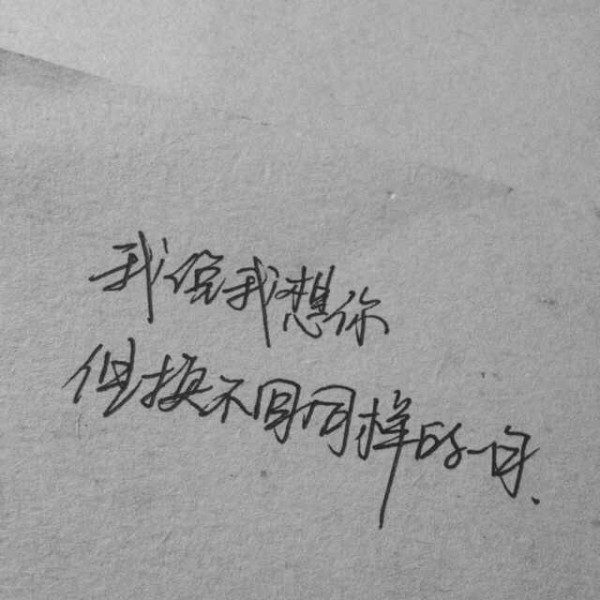 我说我想你
但换不回同样的一句、